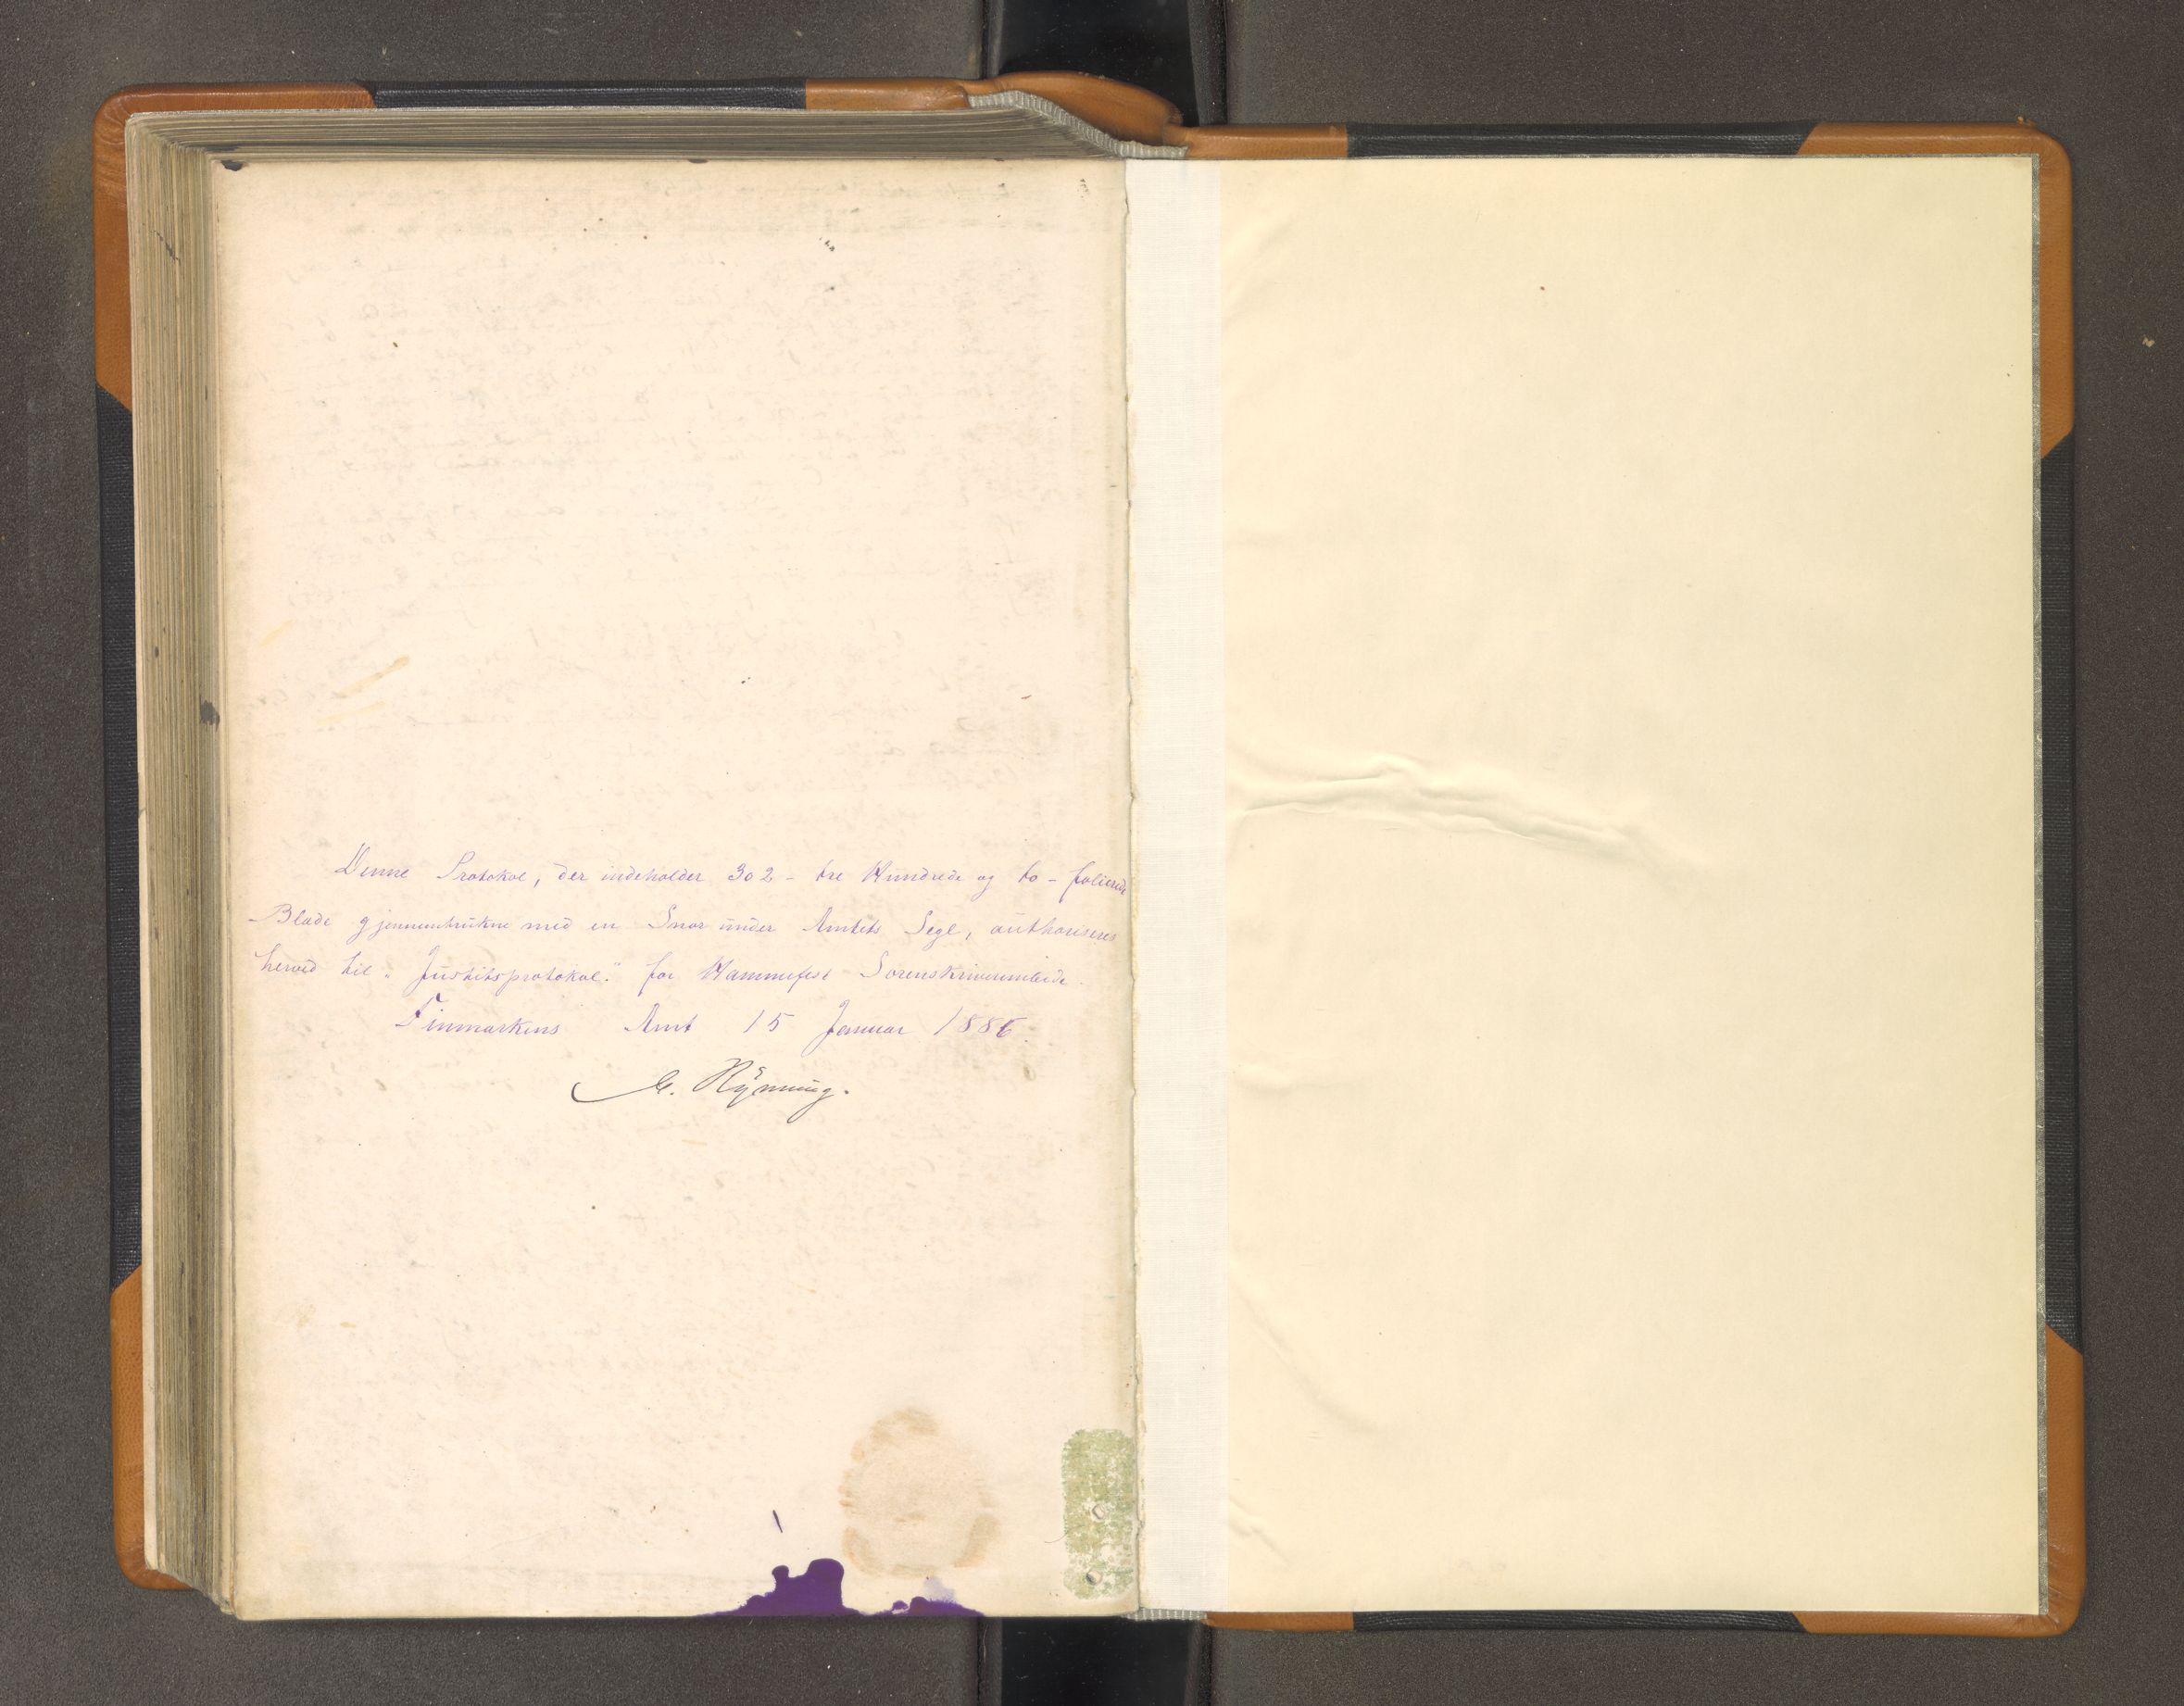 Denne Protokol, der indeholder 302 - tre Hundrede og to - folierede
Blade gjennemtrukne med en Snor under Amtets Segl, authoriseres
herved til „Justitsprotokol.“ for Hammerfest Sorenskriverembede.
Finmarkens Amt 15 Januar 1886.
Rÿnning.